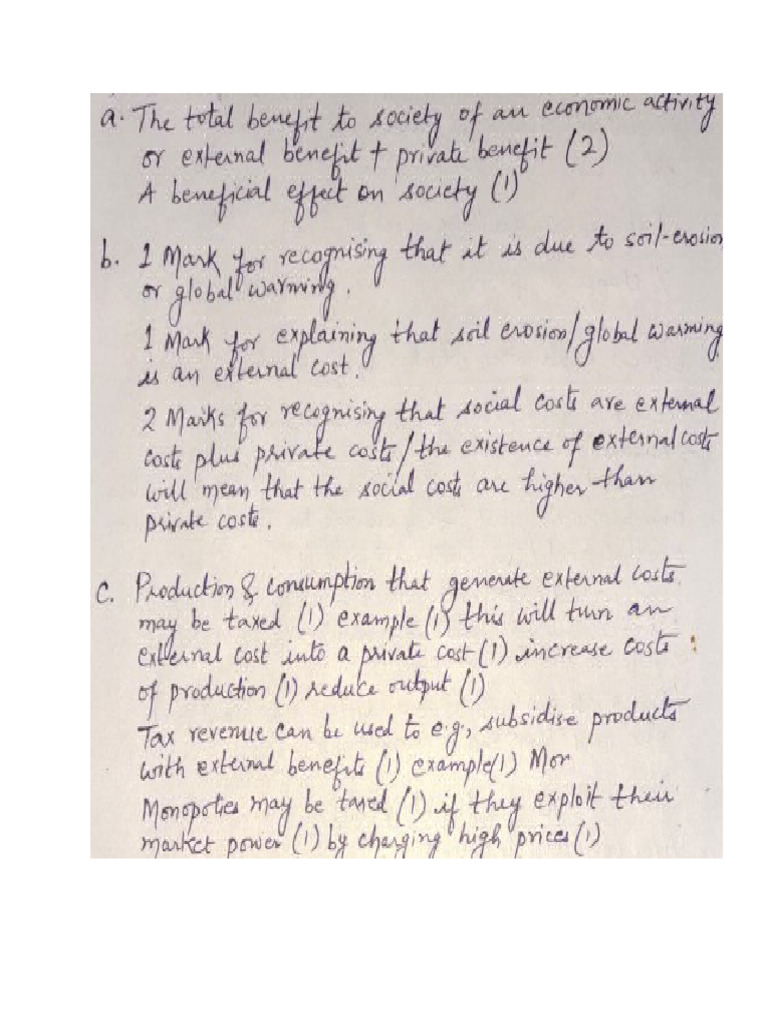 a. The total benefit to society of an economic activity
or external benefit + private benefit (2)
A beneficial effect on society (1)
b. 1 Mark for recognising that it is due to soil-erosion
or global warming.
1 Mark for explaining that soil erosion/global warming
is an external cost.
2 Marks for recognising that social costs are external
costs plus private costs/the existence of external costs
will mean that the social costs are higher than
private costs.
c. Production & consumption that generate external costs
may be taxed (1) example (1) this will turn an
external cost into a private cost (1) increase costs :
of production (1) reduce output (1)
Tax revenue can be used to e.g., subsidise products
with external benefits (1) example(1) Mor
Monopolies may be taxed (1) if they exploit their
market power (1) by charging high prices (1)